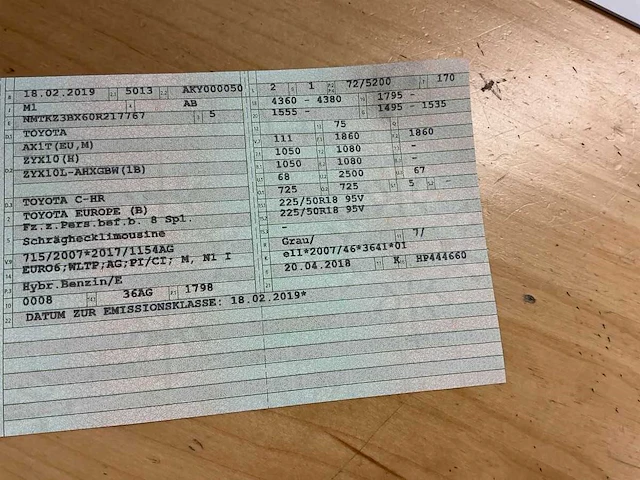 18.02.2019 5013 AKY000050
M1 AB
NMTKZ3BX60R217767 5
TOYOTA
AX1T(EU,M)
ZYX10(H)
ZYX10L-AHXGBW(1B)
TOYOTA C-HR
TOYOTA EUROPE (B)
Fz.z.Pers.bef.b. 8 Spl.
Schräghecklimousine
715/2007*2017/1154AG
EURO6;WLTP;AG;PI/CI; M, N1 I
Hybr.Benzin/E
0008 36AG 1798
DATUM ZUR EMISSIONSKLASSE: 18.02.2019*
2 1 72/5200 170
4360 - 4380 1795 -
1555 - 1495 - 1535
75
111 1860 1860
1050 1080 -
1050 1080 -
68 2500 67
725 725 5 -
225/50R18 95V
225/50R18 95V
-
Grau/ 7/
e11*2007/46*3641*01
20.04.2018 K HP444660